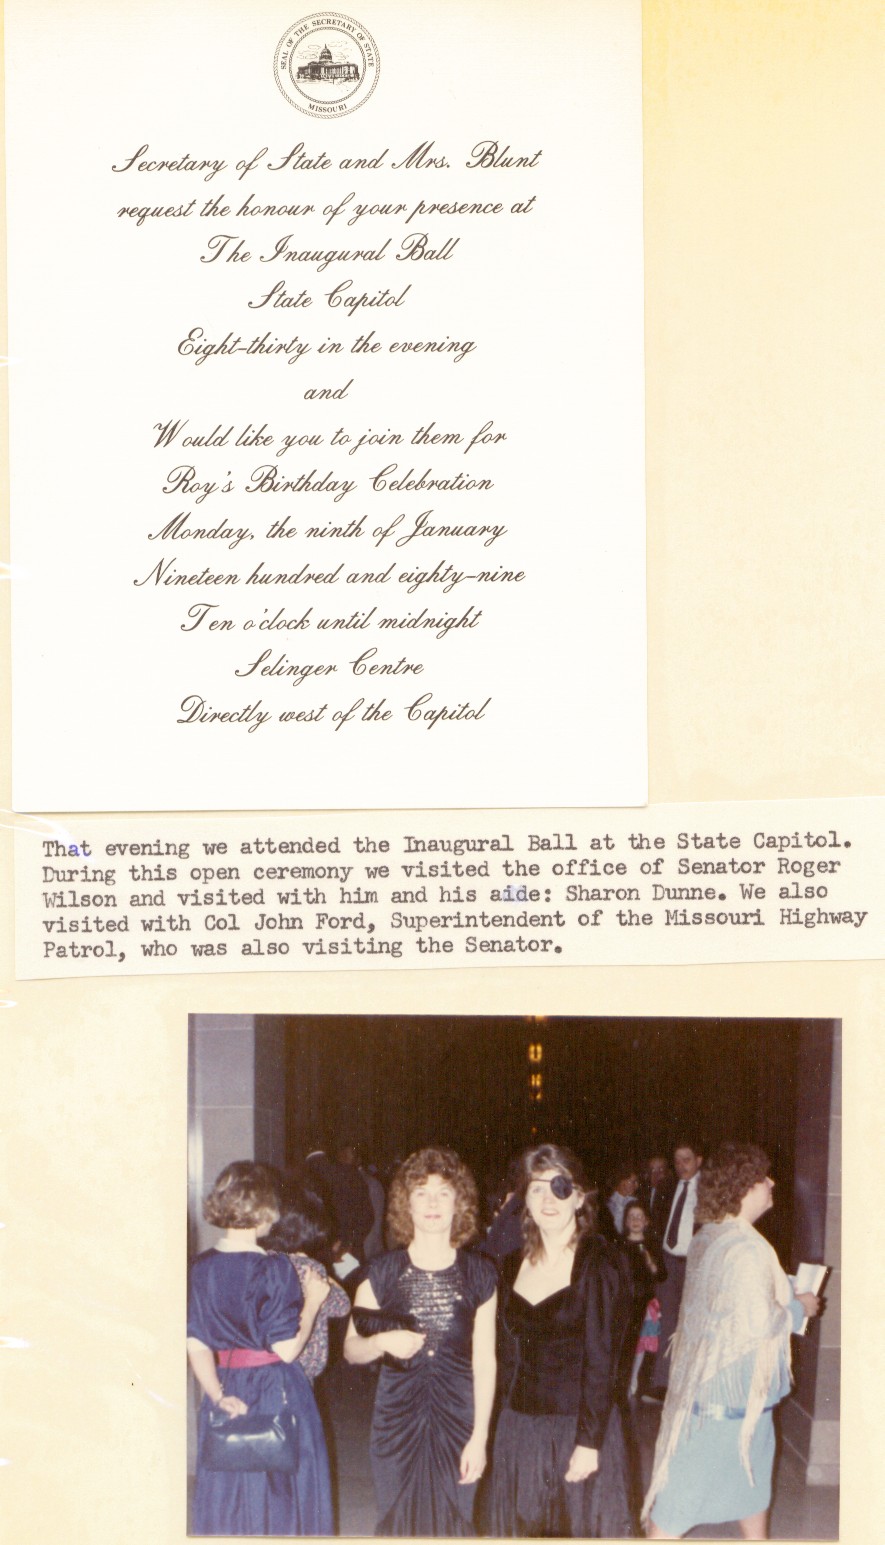 SEAL OF THE SECRETARY OF STATE
MISSOURI
Secretary of State and Mrs. Blunt
request the honour of your presence at
The Inaugural Ball
State Capitol
Eight-thirty in the evening
and
Would like you to join them for
Roy's Birthday Celebration
Monday, the ninth of January
Nineteen hundred and eighty-nine
Ten o'clock until midnight
Selinger Centre
Directly west of the Capitol
That evening we attended the Inaugural Ball at the State Capitol.
During this open ceremony we visited the office of Senator Roger
Wilson and visited with him and his aide: Sharon Dunne. We also
visited with Col John Ford, Superintendent of the Missouri Highway
Patrol, who was also visiting the Senator.